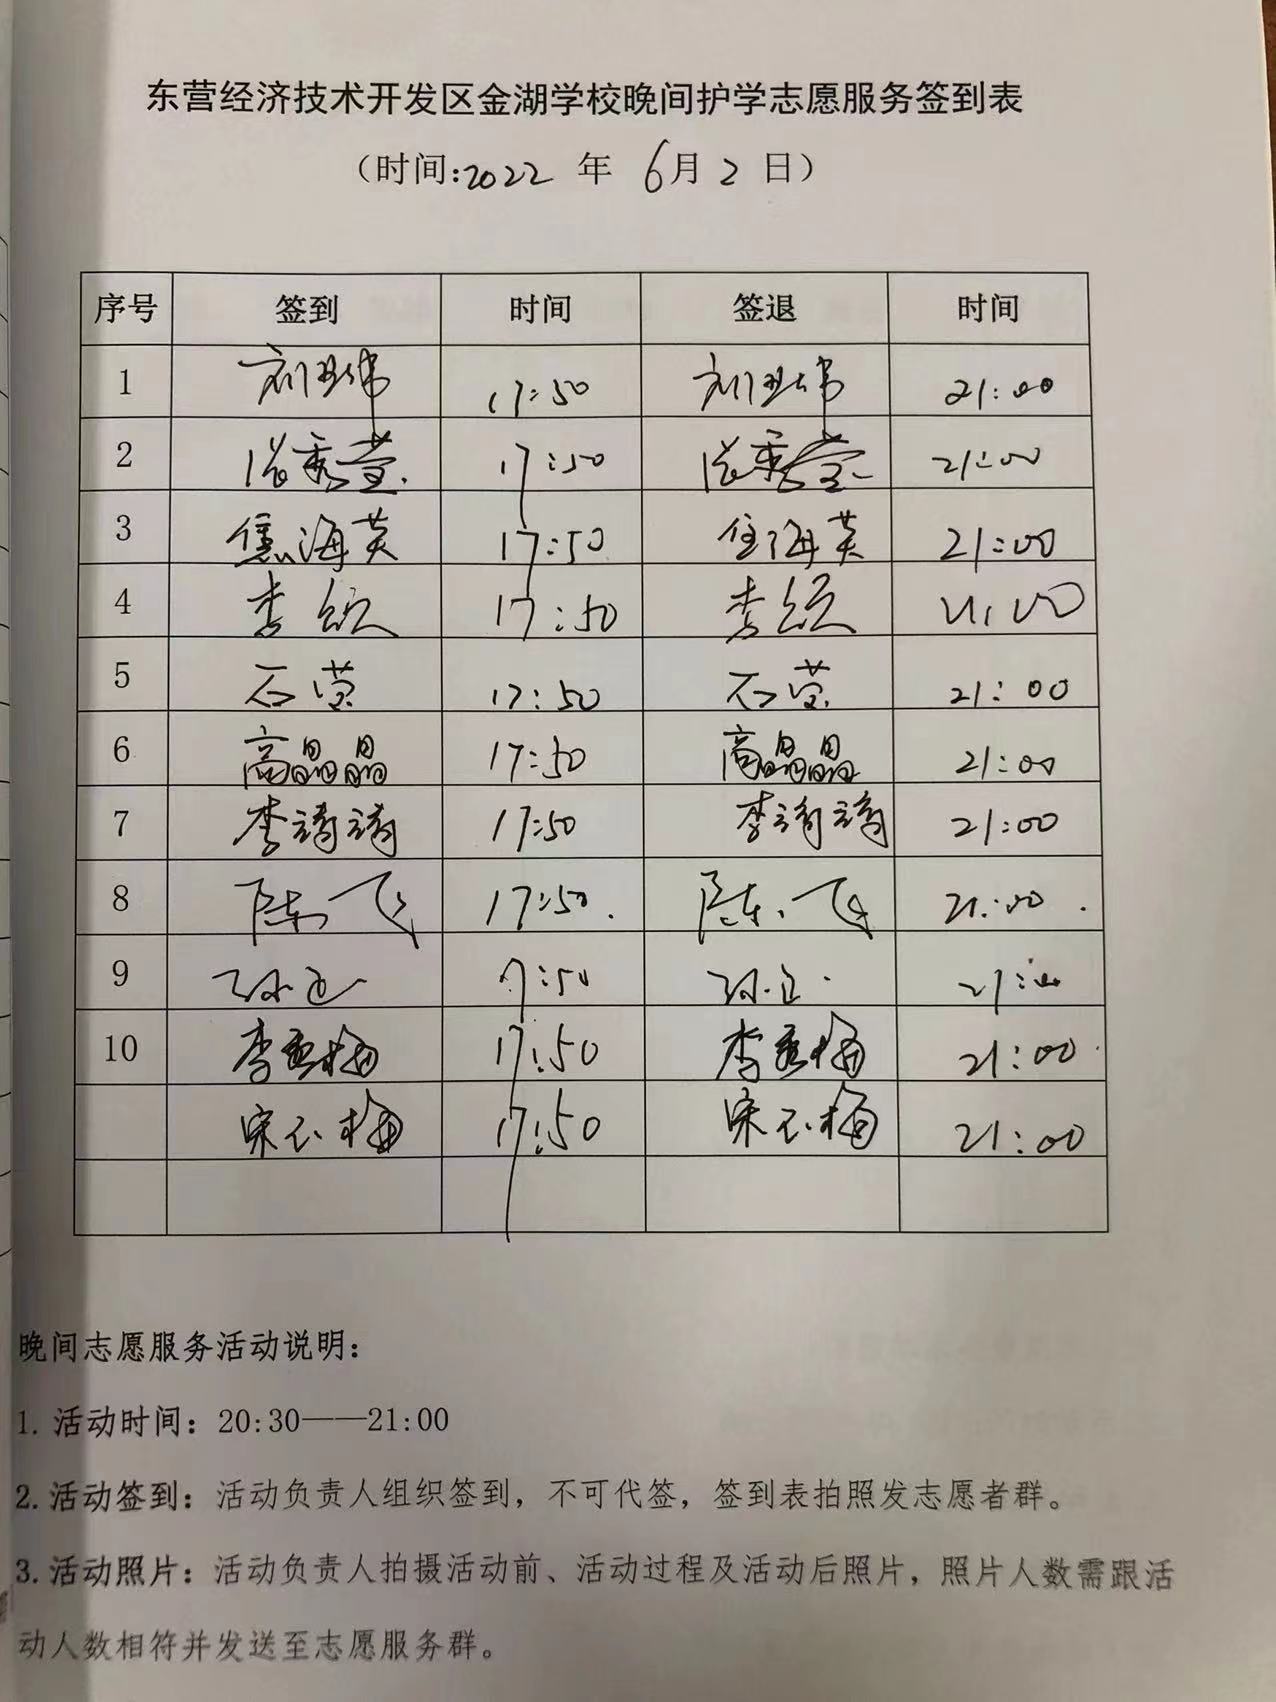 东营经济技术开发区金湖学校晚间护学志愿服务签到表
（时间:2022 年 6月2日）
序号 签到 时间 签退 时间
1 17:50 21:00
2 17:50 21:00
3 焦海英 17:50 焦海英 21:00
4 李 17:50 李 21:00
5 石莹 17:50 石莹 21:00
6 高晶晶 17:50 高晶晶 21:00
7 李靖靖 17:50 李靖靖 21:00
8 陈飞 17:50. 陈飞 21:00.
9 17:50 21:00
10 李秀梅 17:50 李秀梅 21:00
宋不梅 17:50 宋不梅 21:00
晚间志愿服务活动说明：
1. 活动时间：20:30——21:00
2. 活动签到：活动负责人组织签到，不可代签，签到表拍照发志愿者群。
3. 活动照片：活动负责人拍摄活动前、活动过程及活动后照片，照片人数需跟活
动人数相符并发送至志愿服务群。